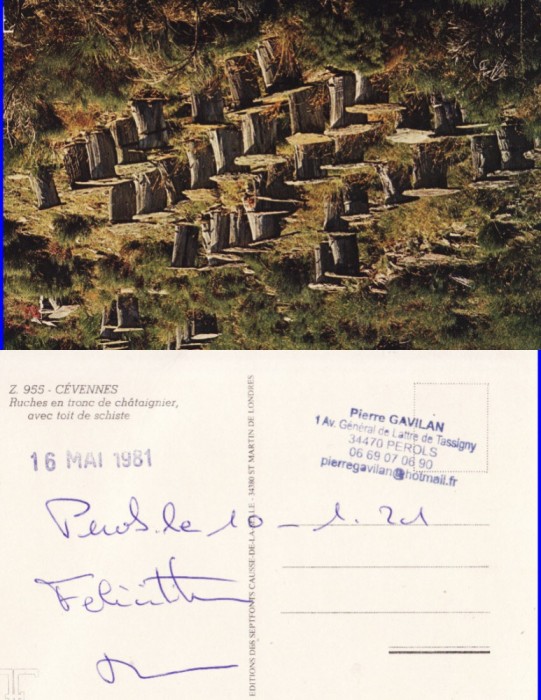 Z. 955 - CÉVENNES
Ruches en tronc de châtaignier,
avec toit de schiste
16 MAI 1981
EDITIONS DES SEPTFONTS CAUSSE-DE-LA-SELLE - 34380 ST MARTIN DE LONDRES
Pierre GAVILAN
1 Av. Général de Lattre de Tassigny
34470 PEROLS
06 69 07 06 90
pierregavilan@hotmail.fr
Perols le 10 - 1. 21